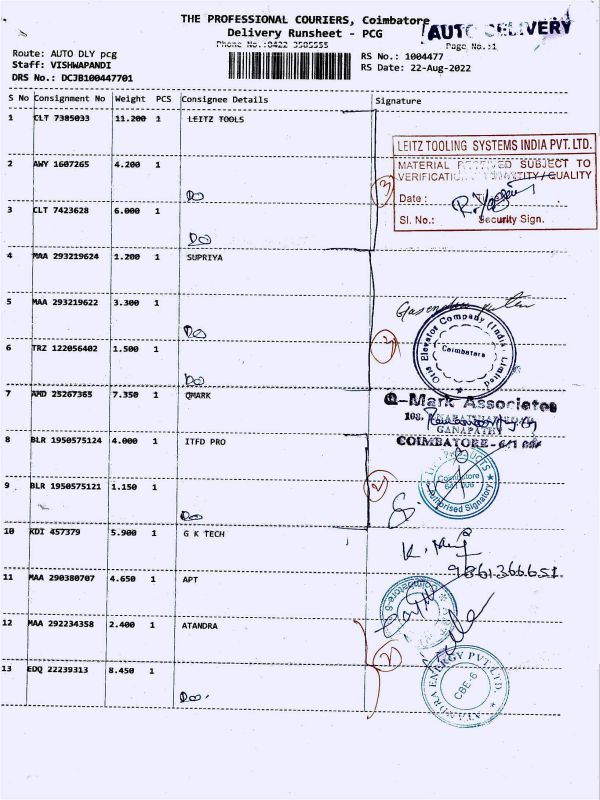 THE PROFESSIONAL COURIERS, Coimbatore
Delivery Runsheet - PCG
AUTO DELIVERY
Phone No.:0422 3505555
Page No.:1
Route: AUTO DLY pcg
Staff: VISHWAPANDI
DRS No.: DCJB100447701
RS No.: 1004477
RS Date: 22-Aug-2022
S No Consignment No Weight PCS Consignee Details Signature
1 CLT 7385033 11.200 1 LEITZ TOOLS
LEITZ TOOLING SYSTEMS INDIA PVT. LTD.
MATERIAL RECEIVED SUBJECT TO
VERIFICATION QUANTITY / QUALITY
Date :
Sl. No.: Security Sign.
3
2 AWY 1607265 4.200 1
Do
3 CLT 7423628 6.000 1
Do
4 MAA 293219624 1.200 1 SUPRIYA
5 MAA 293219622 3.300 1
Do
Otis Elevator Company (India) Limited
Coimbatore
6 TRZ 122056402 1.500 1
Do
7 AMD 25267365 7.350 1 QMARK
Q-Mark Associates
108,
GANAPATHY
COIMBATORE -
8 BLR 1950575124 4.000 1 ITFD PRO
Coimbatore
641 006
Authorised Signatory
9 BLR 1950575121 1.150 1
Do
2
10 KDI 457379 5.900 1 G K TECH
9861366651
11 MAA 290380707 4.650 1 APT
12 MAA 292234358 2.400 1 ATANDRA
2
13 EDQ 22239313 8.450 1
Do
ATANDRA ENERGY PVT. LTD.
CBE-6